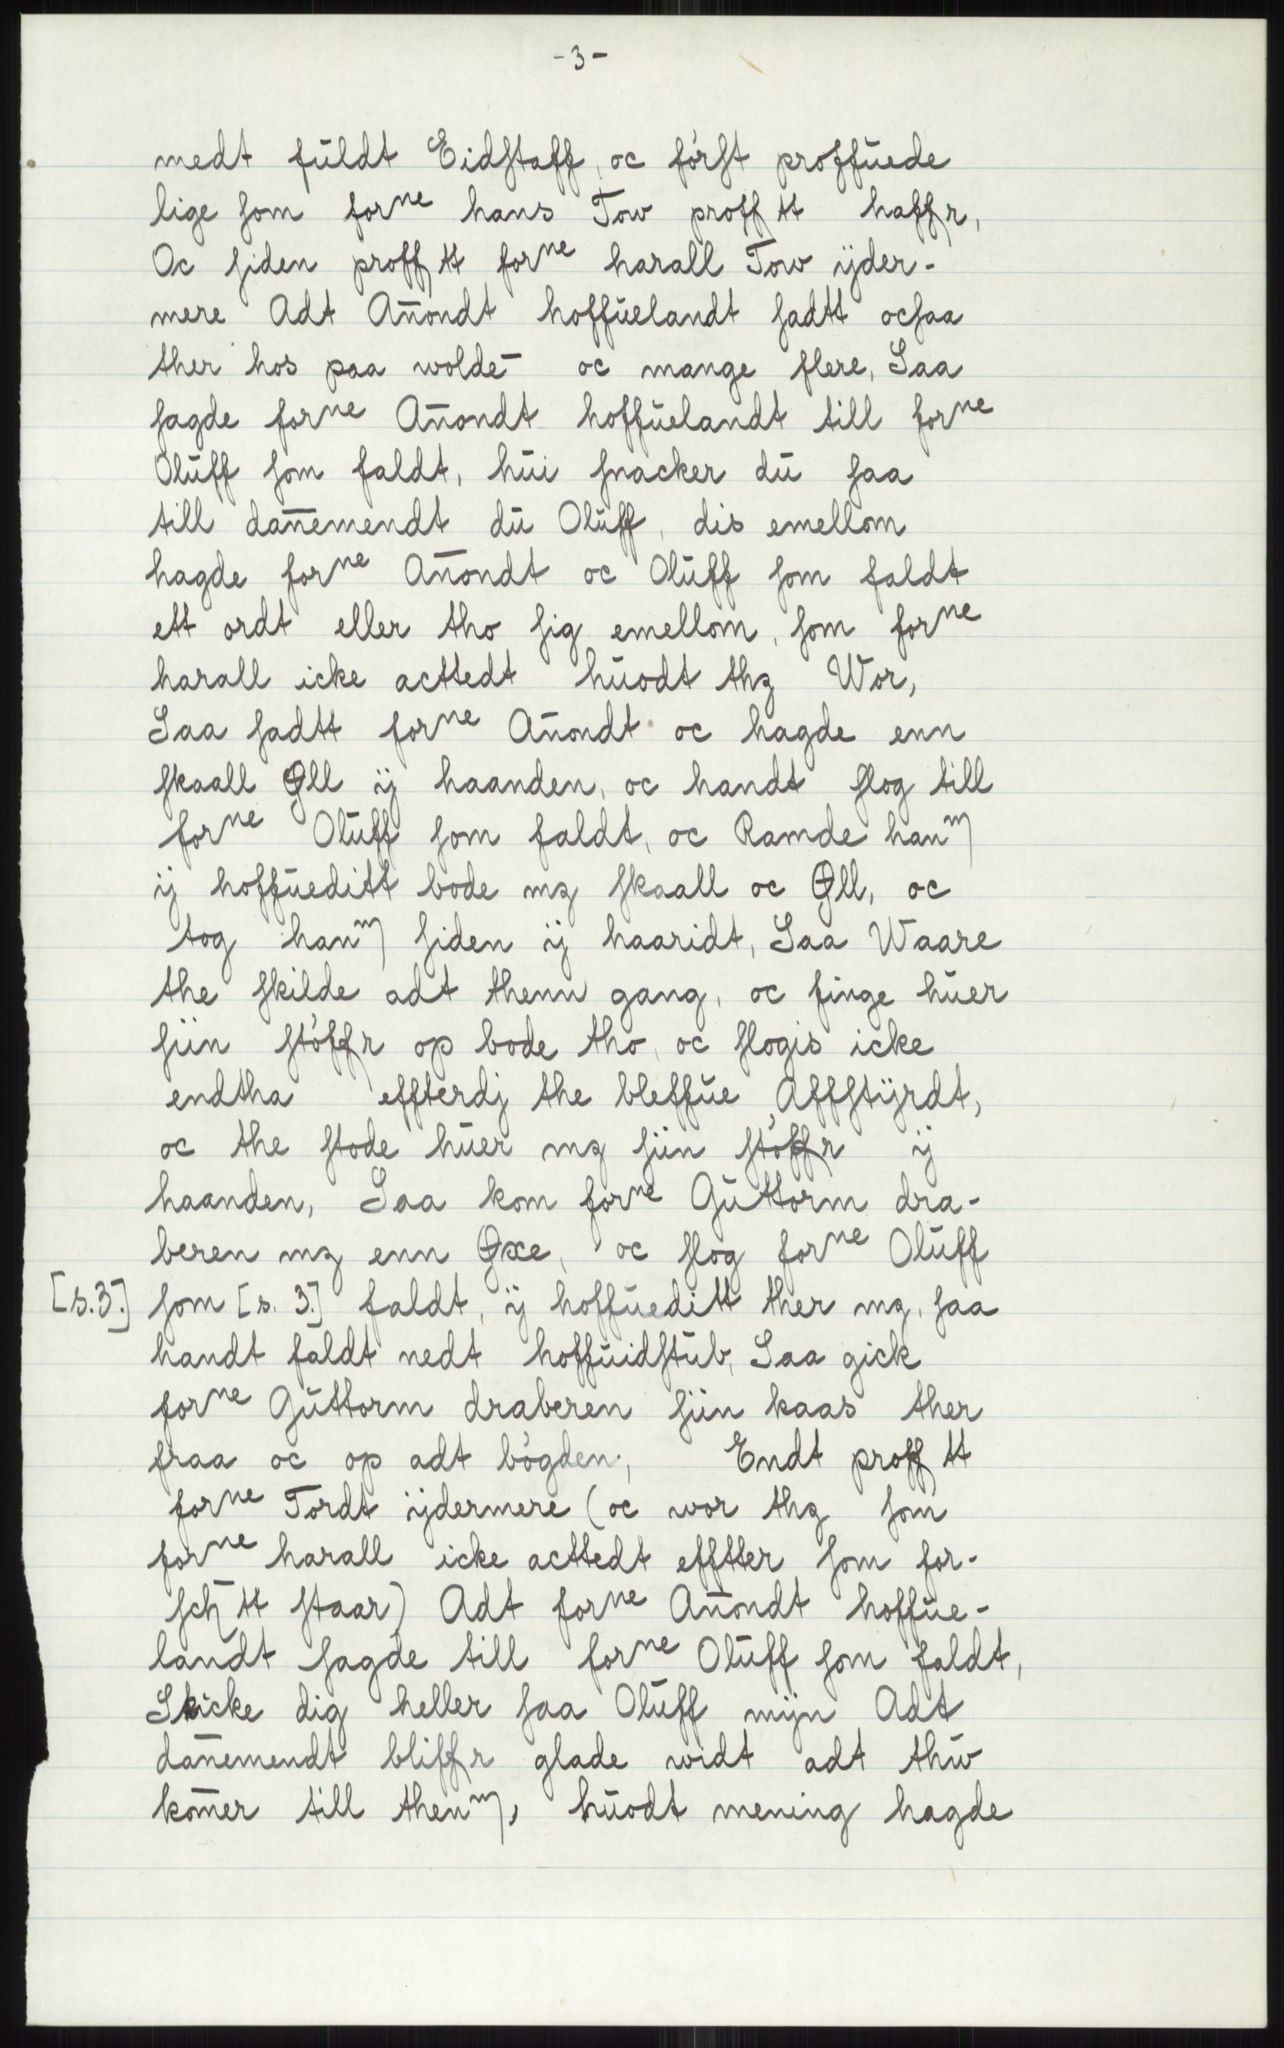 -3-
medt fuldt Eidstaff, oc först proffuede
lige som forne hans Tow proff tt haffr,
Oc siden proff tt forne harall Tow ÿder-
mere Adt Anondt hoffuelandt sadtt ocsaa
ther hos paa wolde oc mange flere, Saa
sagde forne Anondt hoffuelandt till forne
Oluff som faldt, hui snacker du saa
till danemendt du Oluff, dis emellom
hagde forne Anondt oc Oluff som faldt
ett ordt eller tho sig emellom, som forne
harall icke acttedt huodt thz Wor,
Saa sadtt forne Anondt oc hagde enn
skaall Øll ij haanden, oc handt slog till
forne Oluff som faldt, oc Ramde hanm
ij hoffueditt bode mz skaall oc Øll, oc
tog hanm siden ij haaridt, Saa Waare
the skilde adt thenn gang, oc finge huer
siin stöffr op bode tho, oc slogis icke
endtha effterdj the bleffue Affstÿrdt,
oc the stode huer mz siin stöffr ij
haanden, Saa kom forne Guttorm dra-
beren mz enn Øxe, oc slog forne Oluff
[s.3.] som [s. 3.] faldt, ij hoffueditt ther mz, saa
handt faldt nedt hoffuidstub, Saa gick
forne Guttorm draberen siin kaas ther
fraa oc op adt bögden, Endt proff tt
forne Tordt ÿdermere (oc wor thz som
forne harall icke acttedt efftter som for-
sch tt staar) Adt forne Anondt hoffue-
landt sagde till forne Oluff som faldt,
Skicke dig heller saa Oluff mijn Adt
danemendt bliffr glade widt adt thuw
komer till thenm, huodt mening hagde